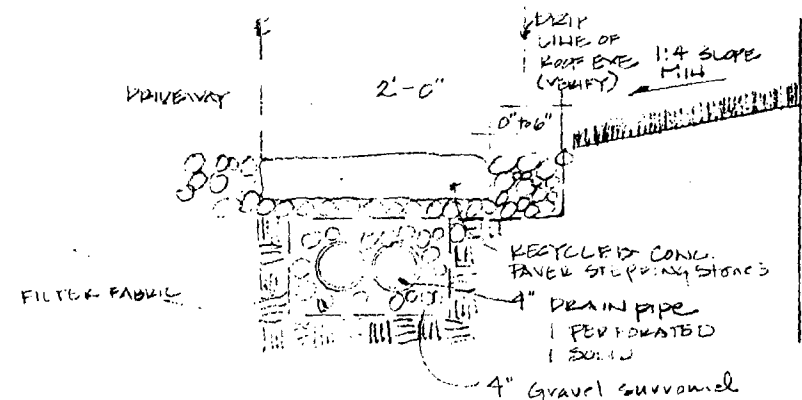 DRIP
LINE OF
ROOF EVE
(VERIFY)
1:4 SLOPE
MIN
DRIVEWAY
2'-0"
0" to 6"
RECYCLED CONC.
PAVER STEPPING STONES
FILTER FABRIC
4" DRAIN pipe
1 PERFORATED
1 SOLID
4" Gravel surround